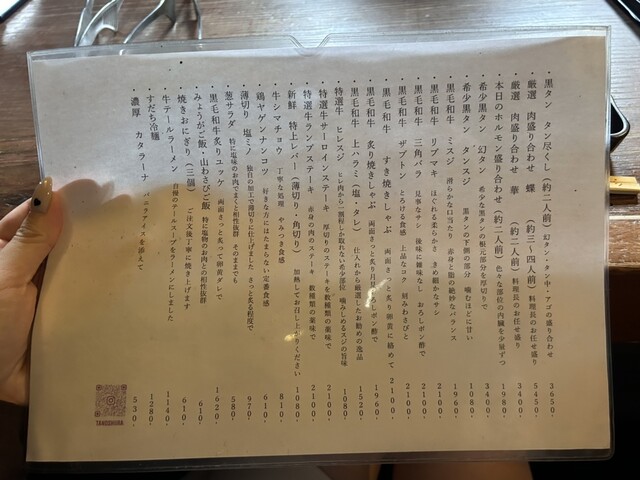 ・黒タン タン尽くし（約二人前） 幻タン・タン中・アゴの盛り合わせ 3650-
・厳選 肉盛り合わせ 蝶 （約三～四人前） 料理長のお任せ盛り 5450-
・厳選 肉盛り合わせ 華 （約二人前） 料理長のお任せ盛り 3400-
・本日のホルモン盛り合わせ（約二人前） 色々な部位の内臓を少量ずつ 1980-
・希少黒タン 幻タン 希少な黒タンの根元部分を厚切りで 3400-
・希少黒タン タンスジ 黒タンの下側の部分 噛むほどに甘い 1080-
・黒毛和牛 ミスジ 滑らかな口当たり 赤身と脂の絶妙なバランス 1960-
・黒毛和牛 リブマキ ほぐれる柔らかさ きめ細かなサシ 2100-
・黒毛和牛 三角バラ 見事なサシ 後味に嫌味なし おろしポン酢で 2100-
・黒毛和牛 ザブトン とろける食感 上品なコク 刻みわさびと 2100-
・黒毛和牛 すき焼きしゃぶ 両面さっと炙り卵黄に絡めて 2100-
・黒毛和牛 炙り焼きしゃぶ 両面さっと炙り おろしポン酢で 1960-
・黒毛和牛 上ハラミ（塩・タレ） 仕入れから厳選したお勧めの逸品 1520-
・特選牛 ヒレスジ ヒレ肉から一割程しか取れない希少部位 噛みしめるスジの旨味 1080-
・特選牛サーロインステーキ 厚切りのステーキを数種類の薬味で 2100-
・特選牛ランプステーキ 赤身の肉のステーキ 数種類の薬味で 2100-
・新鮮 特上レバー（薄切り・角切り） 加熱してお召し上がりください 1080-
・牛シマチョウ 丁寧な処理 やみつき食感 810-
・鶏ヤゲンナンコツ 好きな方にはたまらない定番食感 610-
・薄切り 塩ミノ 独自の加工で薄切りに仕上げました さっと炙る程度で 970-
・葱サラダ 特に塩味のお肉でまくと相性抜群 そのままでも 580-
・黒毛和牛炙りユッケ 両面さっと炙って卵黄ダレで 1620-
・みょうがご飯・山わさびご飯 特に塩物のお肉との相性抜群 610-
・焼きおにぎり（三個） ご注文後丁寧に焼き上げます 610-
・牛テールラーメン 自慢のテールスープをラーメンにしました 1140-
・すだち冷麺 1280-
・濃厚 カタラーナ バニラアイスを添えて 530-
TANGOKURA